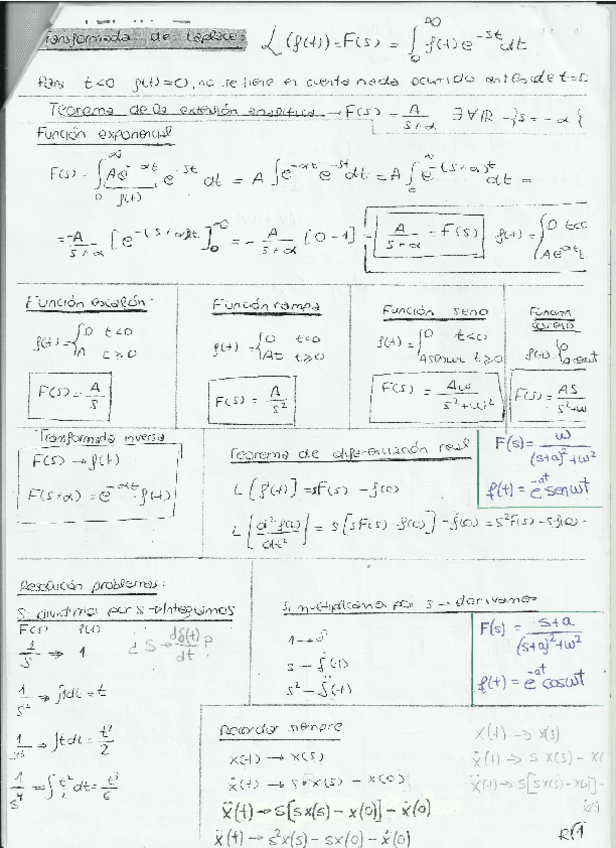 Transformada de Laplace: L(f(t)) = F(s) = ∫₀^∞ f(t) e^-st dt
Para t<0 f(t)=0, no se tiene en cuenta nada ocurrido antes de t=0
Teorema de la extensión analítica → F(s) = A/(s+α) ∃ ∀ ℝ - {s = -α}
Función exponencial
F(s) = ∫₀^∞ Ae^-αt e^-st dt = A ∫ e^-αt e^-st dt = A ∫₀^∞ e^-(s+α)t dt =
f(t)
= -A/(s+α) [e^-(s+α)t]₀^∞ = - A/(s+α) [0-1] = A/(s+α) = F(s) f(t) = { 0 t<0
Ae^-αt t
Función escalón:
f(t) = { 0 t<0
A t≥0
F(s) = A/s
Función rampa
f(t) = { 0 t<0
At t≥0
F(s) = A/s²
Función seno
f(t) = { 0 t<0
Asenωt t≥0
F(s) = Aω/(s²+ω²)
Función
coseno
f(t) { 0
cosωt
F(s) = AS/(s²+ω
Transformada inversa
F(s) → f(t)
F(s+α) = e^-αt · f(t)
Teorema de diferenciación real
L[f'(t)] = sF(s) - f(0)
L[d²f(t)/dt²] = s[sF(s) - f(0)] - f(0) = s²F(s) - sf(0) -
F(s) = ω/((s+a)²+ω²)
f(t) = e^-at senωt
Resolución problemas:
Si dividimos por s → Integramos
F(s) f(t)
1/s ⇒ 1 ¿ S → dδ(t)/dt ?
1/s² ⇒ ∫1dt = t
1/s³ ⇒ ∫tdt = t²/2
1/s⁴ ⇒ ∫t²/2 dt = t³/6
Si multiplicamos por s → derivamos
1 → δ
s → ḟ(t)
s² → f̈(t)
F(s) = (s+a)/((s+a)²+ω²)
f(t) = e^-at cosωt
Recordar siempre
x(t) → x(s)
ẋ(t) → s·x(s) - x(0)
ẍ(t) → s[sx(s) - x(0)] - ẋ(0)
ẍ(t) → s²x(s) - sx(0) - ẋ(0)
x(t) → x(s)
ẋ(t) → s x(s) - x(
ẍ(t) → s[sx(s) - x(0)] -